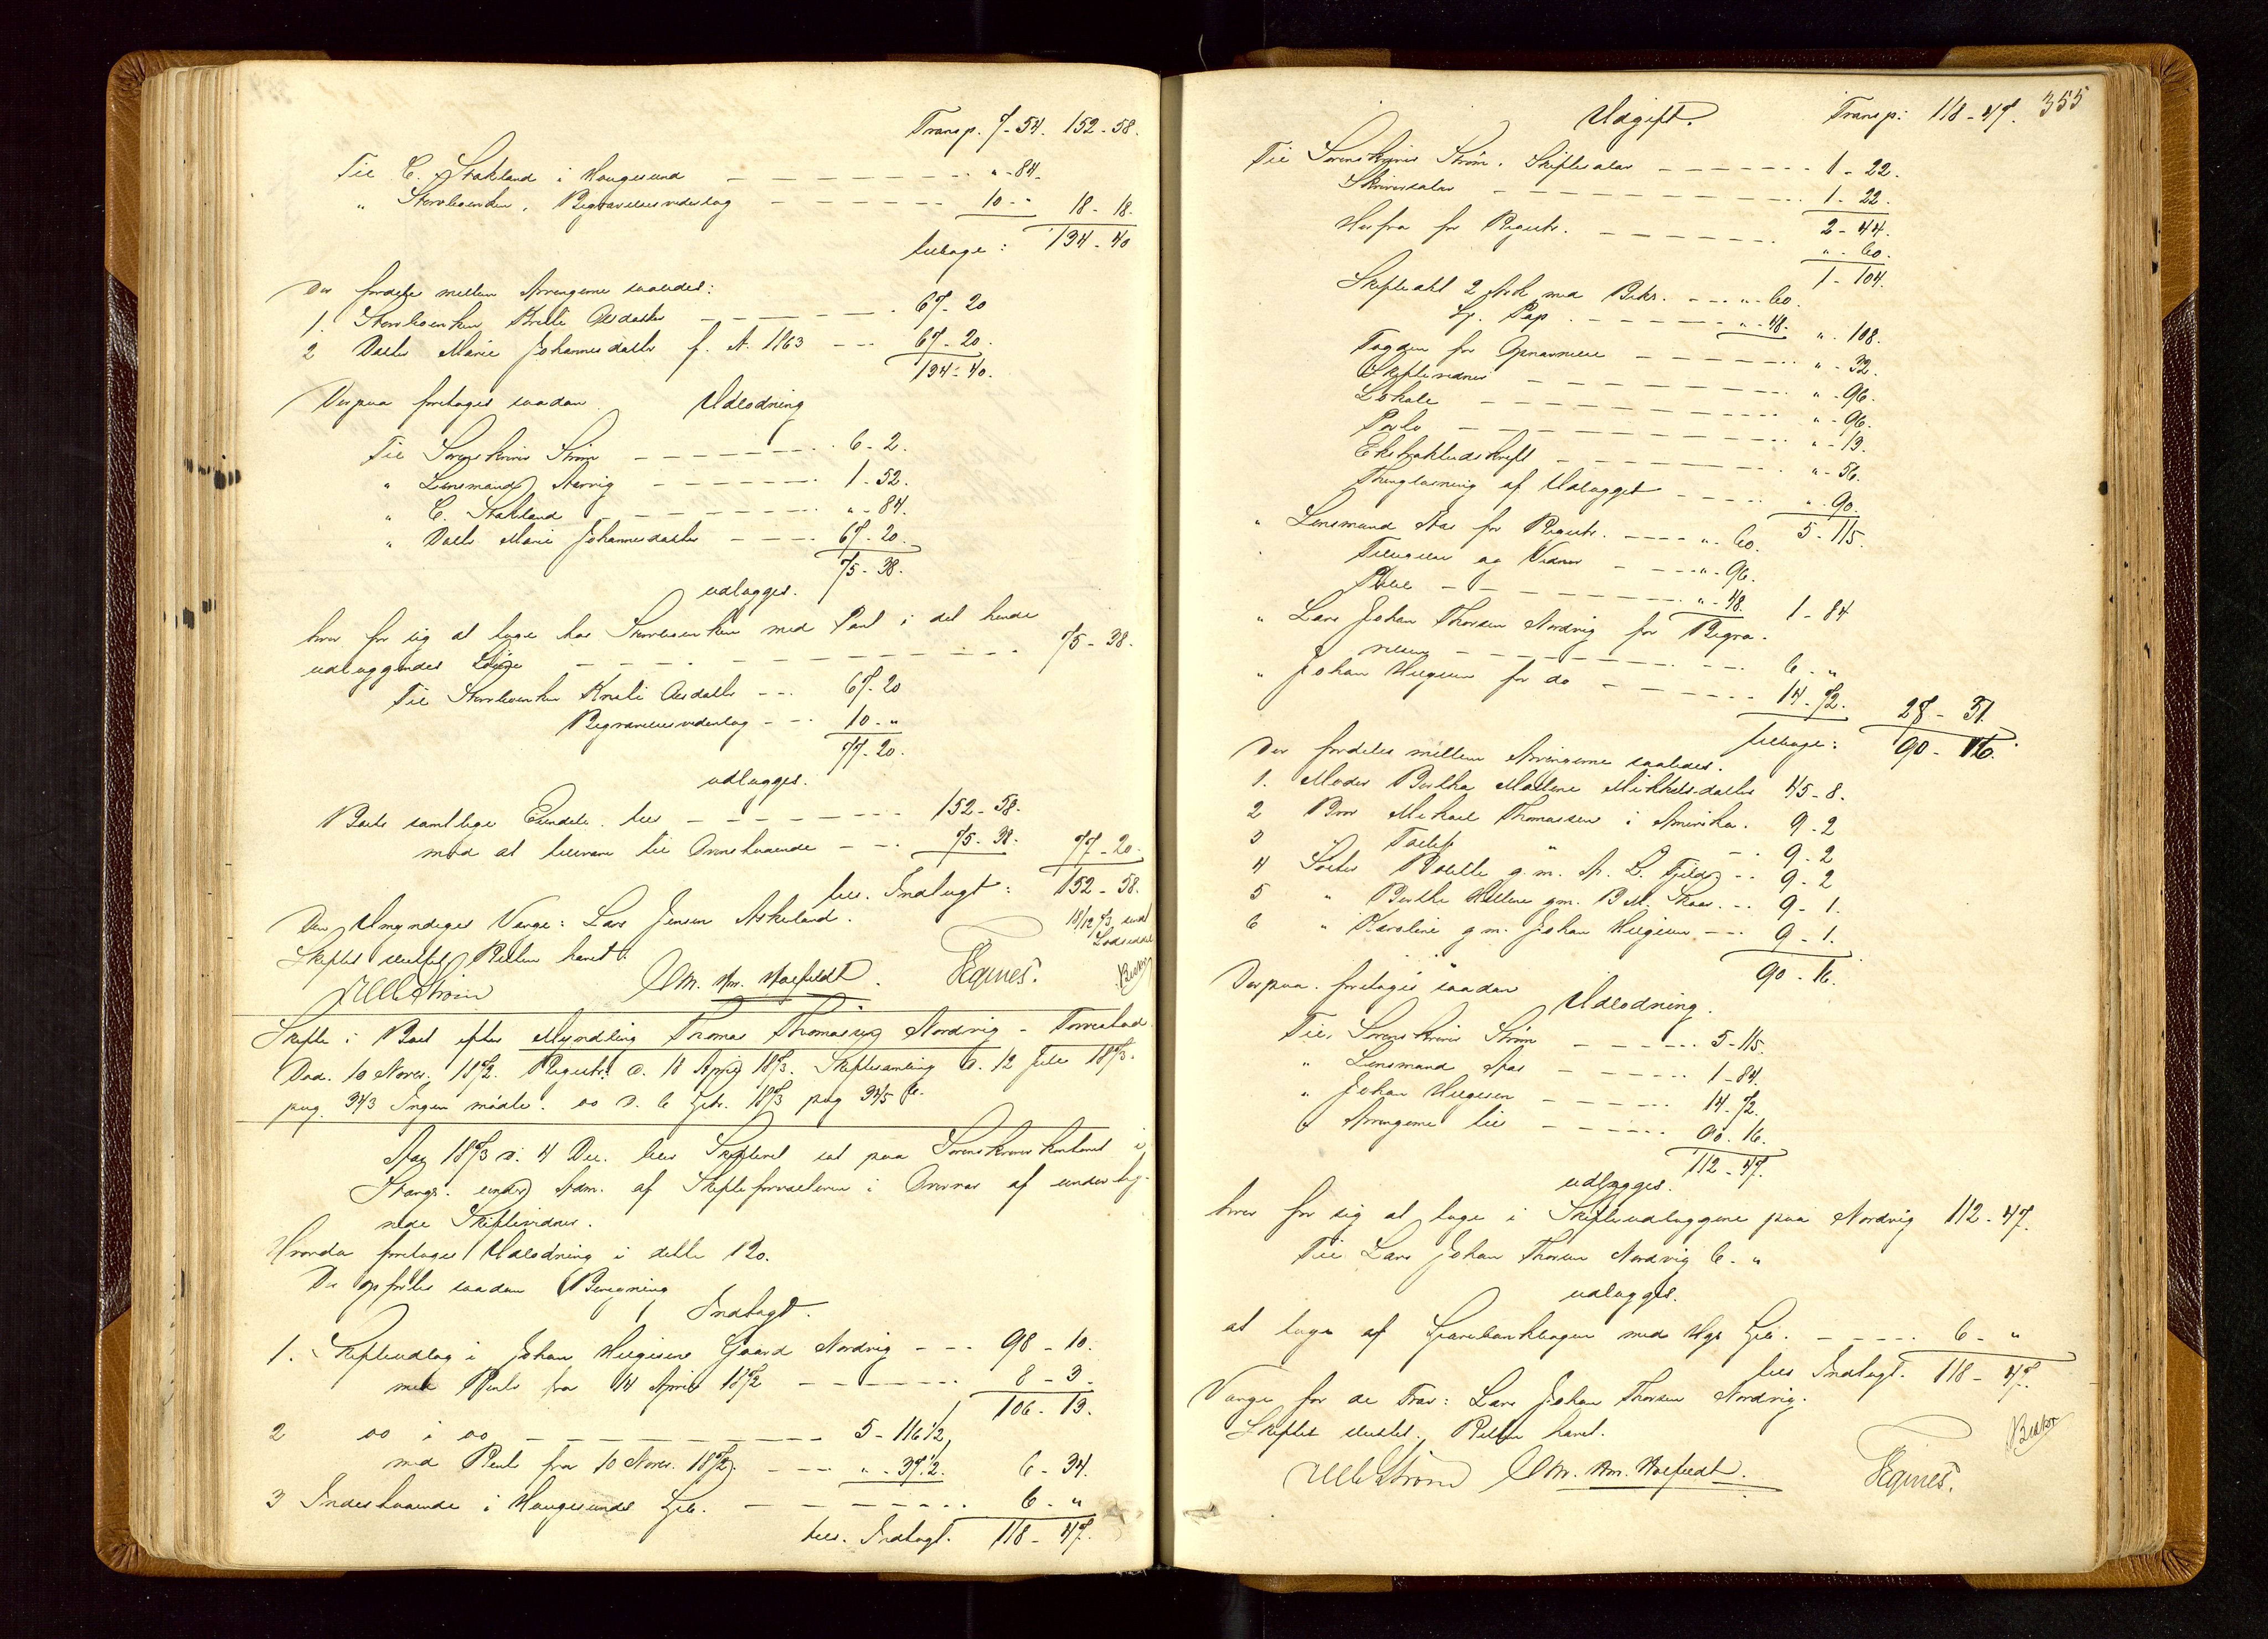 Transp. 7-54. 152-58.
Til C. Stakland i Haugesund — " - 84.
" Stervboenken, Begravelsesvederlag — 10 - " 18-18.
tilbage: 134-40
Der fordeles mellem Arvingerne saaledes:
1. Stervboenken Kristi Aasdatter — 67-20
2 Datter Marie Johannesdatter f. A. 1863 — 67-20.
134-40.
Derpaa foretages saadan Udlodning
Til Sorenskriver Strøm — 6-2.
" Lensmand Aarvig — 1-52.
" C. Stakland — " - 84.
" Datter Marie Johannesdatter — 67-20.
75-38.
udlægges.
hver for sig at tage hos Stervboenken med Pant i det hende
udlæggendes Løsøre — 75-38.
Til Stervboenken Kristi Aasdatter — 67-20
Begravelsesvederlag — 10-"
77-20.
udlægges.
Boets samtlige Eiendele til — 152-58.
mod at tilsvare til Ovenstaaende — 75-38. 77-20.
til. Indtægt: 152-58.
Den Umyndiges Værge: Lars Jensen Askeland.
18/12 73 sendt
Lodseddel
Skiftet sluttet. Retten hævet.
Strøm Chr. Am. Hoefeldt. Egenes. Besker
Skifte i Boet efter Myndling Thomas Thomassen Nordvig - Torvestad
Død. 10 Novbr. 1872. Registr. d. 18 April 1873. Skiftesamling d. 12 Juli 1873.
pag. 343 Ingen mødte. do d. 6 Sebr. 1873 pag 345 b.
Aar 1873 d. 4 Dec. blev Skifteret sat paa Sorenskriverkontoret i
Stange. under Adm. af Skifteforvalteren i Overvær af underteg-
nede Skiftevidner.
Hvorda foretages Udlodning i dette Bo.
Der opførtes saadan Beregning
Indtægt.
1. Skifteudlæg i Johan Helgesens Gaard Nordvig — 98-10.
med Rente fra 14 April 1872 — 8-3.
106-13.
2 do i do — 5-116 1/2
med Rente fra 10 Novbr. 1872. — " - 37 1/2. 6-34.
3 Indestaaende i Haugesunds Spb. — 6-"
til. Indtægt. 118-47.
355
Udgift. Transp: 118-47.
Til Sorenskriver Strøm. Skiftesalær — 1-22.
Skriversalær — 1-22.
2-44.
Herfra for Registr. — " - 60.
1-104.
Skifteakt 2 Ark med Bekr. — " - 60.
St. Pap. — " - 48. " - 108.
Taxten for Opnævnelse — " - 32.
Skiftevidner — " - 96.
Lokale — " - 96.
Porto — " - 13.
Ekstraktudskrift — " - 56.
Thinglæsning af Udlægget — " - 90.
5-115.
" Lensmand Aas for Registr. — " - 60.
Tilsigelse og Vidner — " - 96.
— " - 48. 1-84
" Lars Johan Thorsen Nordvig for Begra-
velsen — 6-"
" Johan Helgesen for do — 14-72. 28-51.
tilbage: 90-16.
Der fordeles mellem Arvingerne saaledes.
1. Moder Bertha Mallene Mikkelsdatter 45-8.
2 Bror Mikael Thomassen i Amerika. 9-2
3 " Tollef " — 9-2
4 Søster g. m. A. L. Fjeld — 9-2
5 " Berthe Hellene gm. B. M. Skaar — 9-1.
6 " Karoline g m. Johan Helgesen — 9-1.
90-16.
Derpaa foretages saadan Udlodning.
Til Sorenskriver Strøm — 5-115.
" Lensmand Aas — 1-84.
" Johan Helgesen — 14-72.
" Arvingerne til — 90-16.
112-47.
udlægges.
hver for sig at tage i Skifteudlæggene paa Nordvig 112-47.
Til Lars Johan Thorsen Nordvig 6-"
udlægges.
at tage af Sparebankbogen med Hgs Spb. — 6-"
til Indtægt. 118-47.
Værge for de Frav: Lars Johan Thorsen Nordvig.
Skiftet sluttet. Retten hævet.
Strøm Chr. Am. Hoefeldt. Egenes. Besker